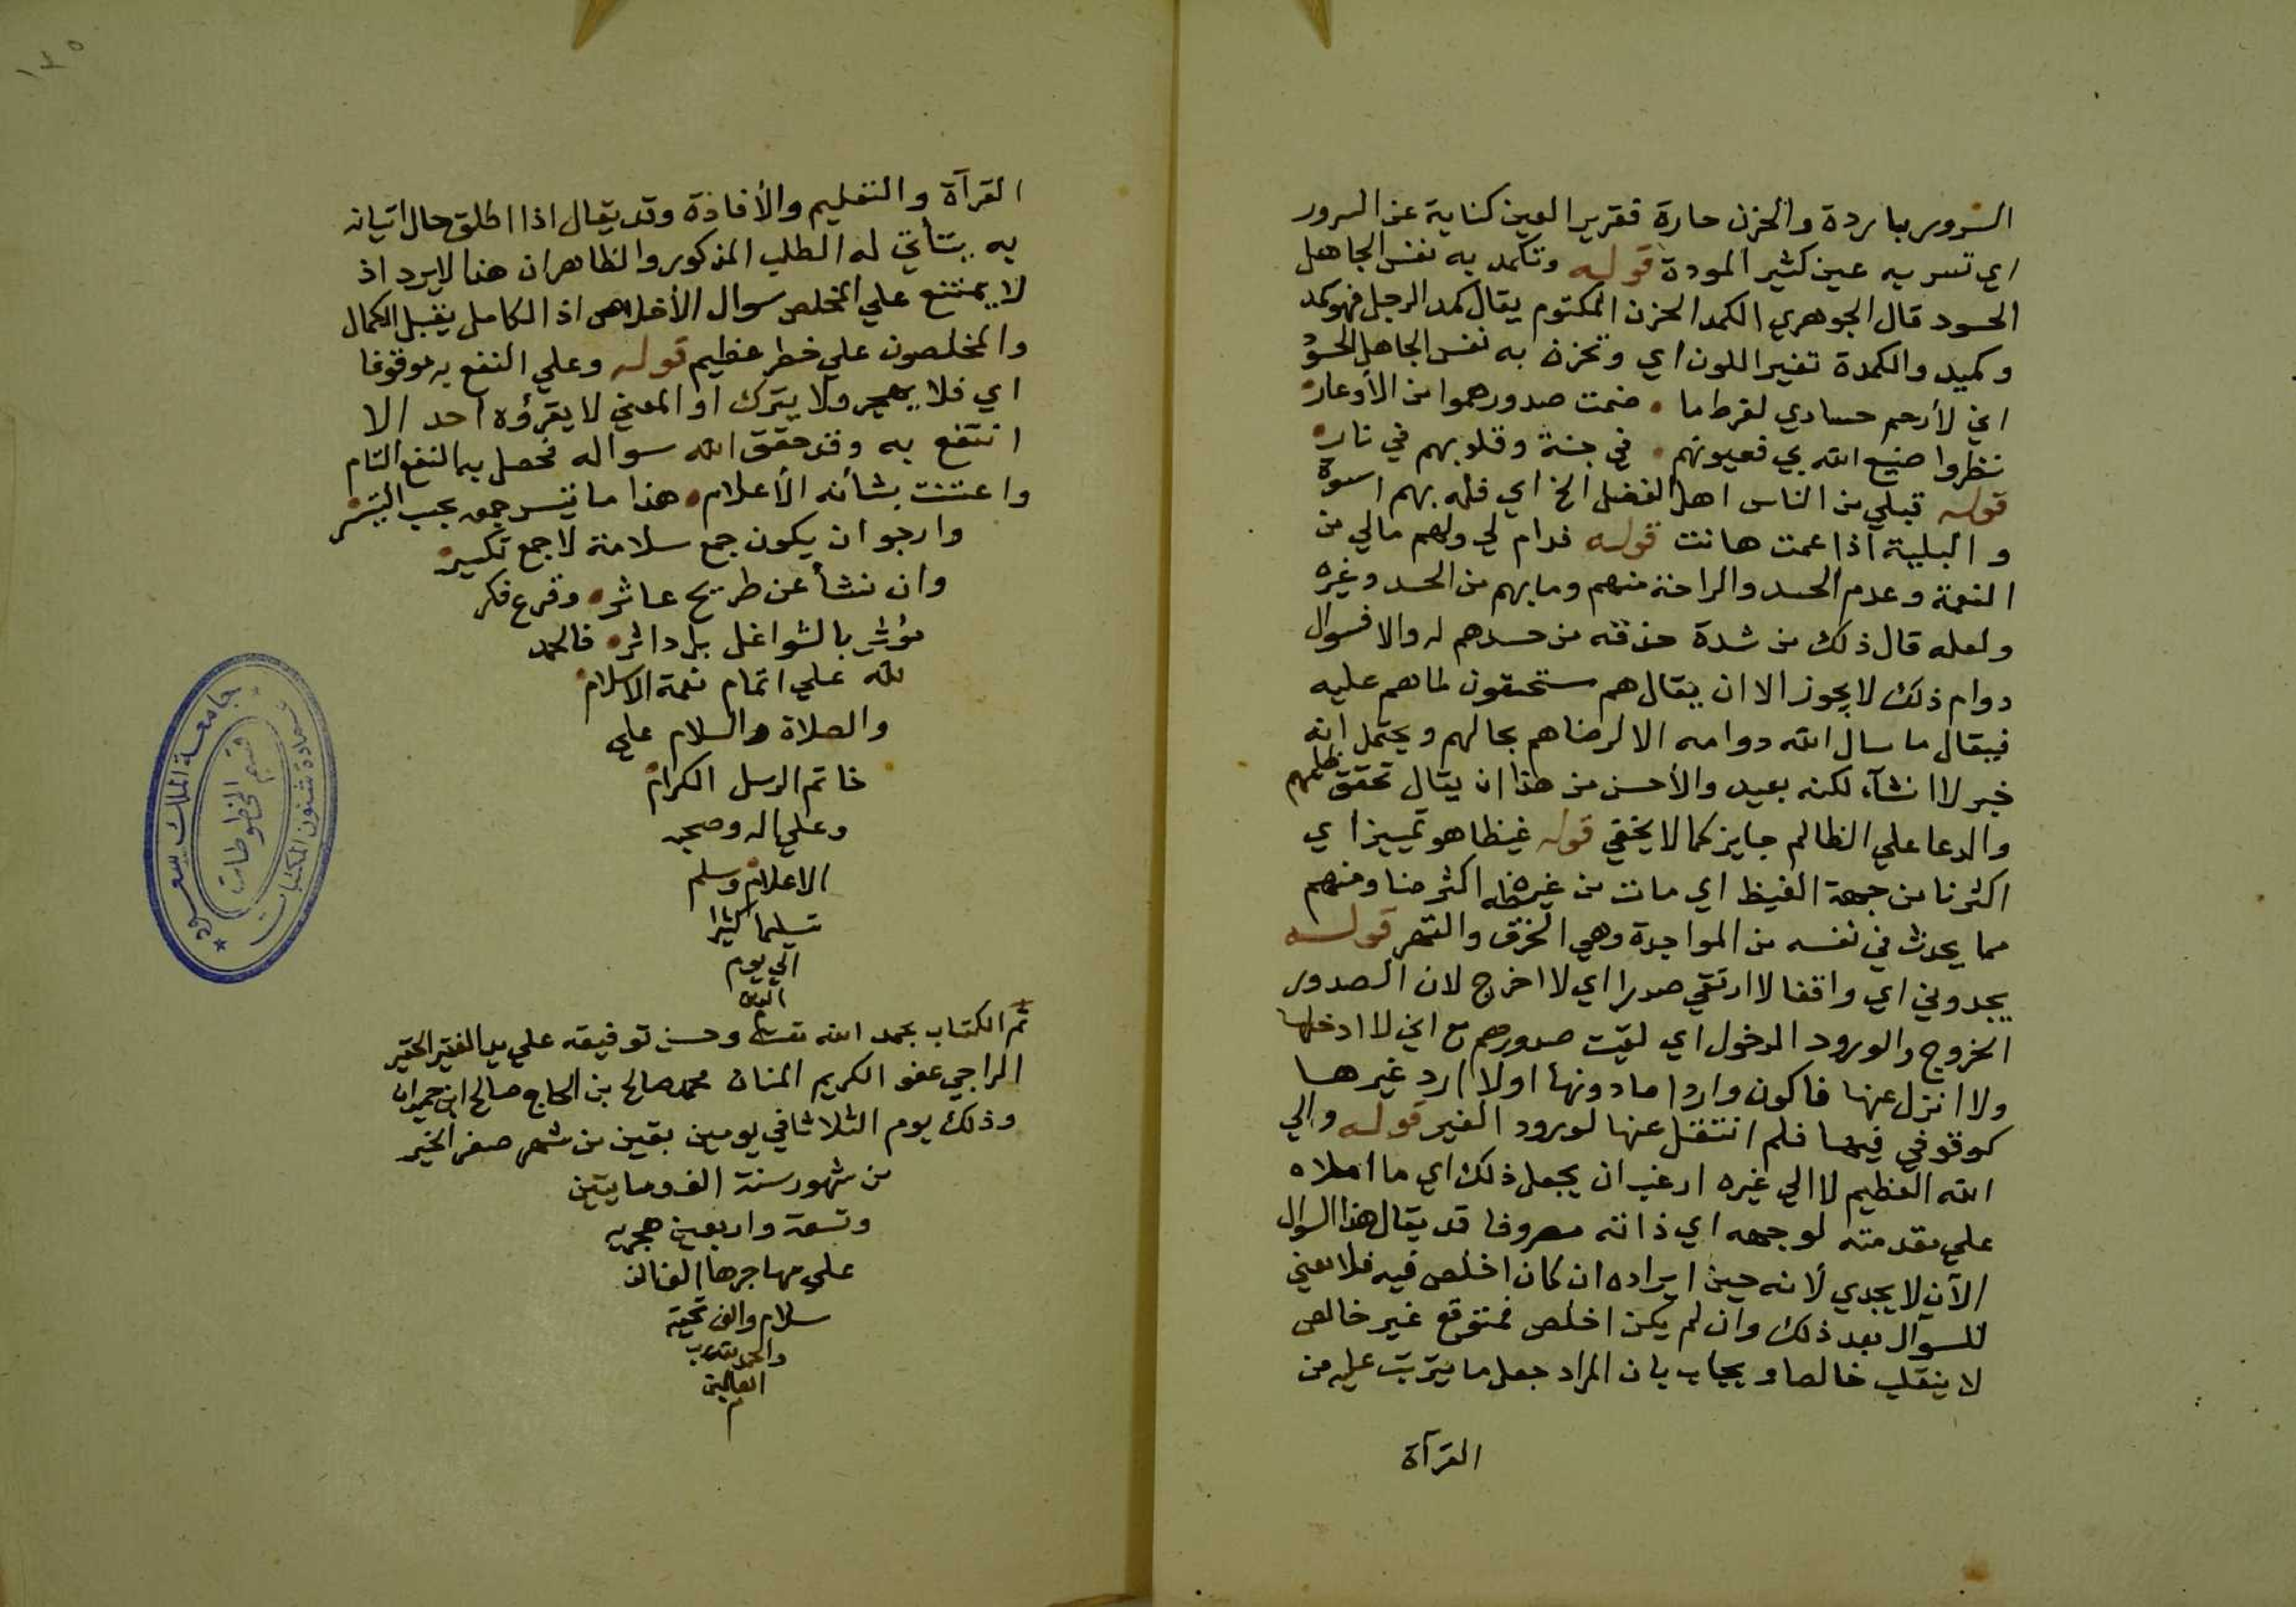 السرور باردة والحزن حارة فقرير العين كناية عن السرور
اي تسر به عين كثير المودة قوله وتكمد به نفس الجاهل
الحسود قال الجوهري الكمد الحزن المكتوم يقال كمد الرجل فهو كمد
وكميد والكمدة تغير اللون اي وتحزن به نفس الجاهل الحسود
اني لأرحم حسادي لفرط ما . ضمت صدورهموا من الأوغار
نظروا صنيع الله بي فعيونهم . في جنة وقلوبهم في نار
قوله قبلي من الناس اهل الفضل الخ اي فله بهم اسوة
والبلية اذا عمت هانت قوله فدام لي ولهم مالي من
النعمة وعدم الحسد والراحة منهم وما بهم من الحسد وغيره
ولعله قال ذلك من شدة حذقه من حسدهم له والا فسوال
دوام ذلك لا يجوز الا ان يقال هم مستحقون لما هم عليه
فيقال ما سال الله دوامه الا لرضاهم بحالهم ويحتمل انه
خبر لا انشآء لكنه بعيد والأحسن من هذا ان يقال تحقق ظلمهم
والدعا على الظالم جايز كما لا يخفي قوله غيظا هو تمييز اي
اكثرنا من جهة الغيظ اي مات من غيظه اكثر منا ومنهم
مما يحدث في نفسه من المواجدة وهي الحزن والقهر قوله
يجدوني اي واقفا لا ارتقي صدرا اي لا اخرج لان الصدور
الخروج والورود الدخول اي لقيت صدورهم مع اني لا ادخلها
ولا انزل عنها فاكون واردا ما دونها اولا ارد غيرها
كوقوفي فيها فلم انتقل عنها لورود الغير قوله والي
الله العظيم لا الي غيره ارغب ان يجعل ذلك اي ما املاه
علي مقدمته لوجهه اي ذاته مصروفا قد يقال هذا السوال
الآن لا يجدي لأنه حين ايراده ان كان اخلص فيه فلا معني
للسوال بعد ذلك وان لم يكن اخلص فمتوقع غير خالص
لا ينقلب خالصا ويجاب بان المراد جعل ما يترتب عليه من
القرآة
القرآة والتعليم والأفادة وقد يقال اذا اطلق حال اتيانه
به يتأتي له الطلب المذكور والظاهر ان هذا لا يرد اذ
لا يمتنع علي المخلص سوال الأخلاص اذ الكامل يقبل الكمال
والمخلصون علي خطر عظيم قوله وعلي النفع به موقوفا
اي فلا يهجر ولا يترك او المعني لا يقرؤه احد الا
انتفع به وقد حقق الله سواله فحصل به النفع التام
واعتنت بشأنه الأعلام هذا ما تيسر جمعه بحسب التيسر
وارجو ان يكون جمع سلامة لا جمع تكسير
وان نشأ عن طريح عاثر وقرع فكر
مؤثر بالشواغل بل داثر فالحمد
لله علي اتمام نعمة الاسلام
والصلاة والسلام علي
خاتم الرسل الكرام
وعلي اله وصحبه
الاعلام وسلم
تسليما كثيرا
الي يوم
الدين
تم الكتاب بحمد الله تعالى وحسن توفيقه علي يد الفقير الحقير
الراجي عفو الكريم المنان محمد صالح بن الحاج صالح ابن حميدان
وذلك يوم الثلاثا في يومين بقين من شهر صفر الخير
من شهور سنة الف ومايتين
وتسعة واربعين هجريه
علي مهاجرها الف الف
سلام والف تحية
والحمد لله رب
العالمين
م
١٣٥
جامعة الملك سعود
قسم المخطوطات
عمادة شئون المكتبات